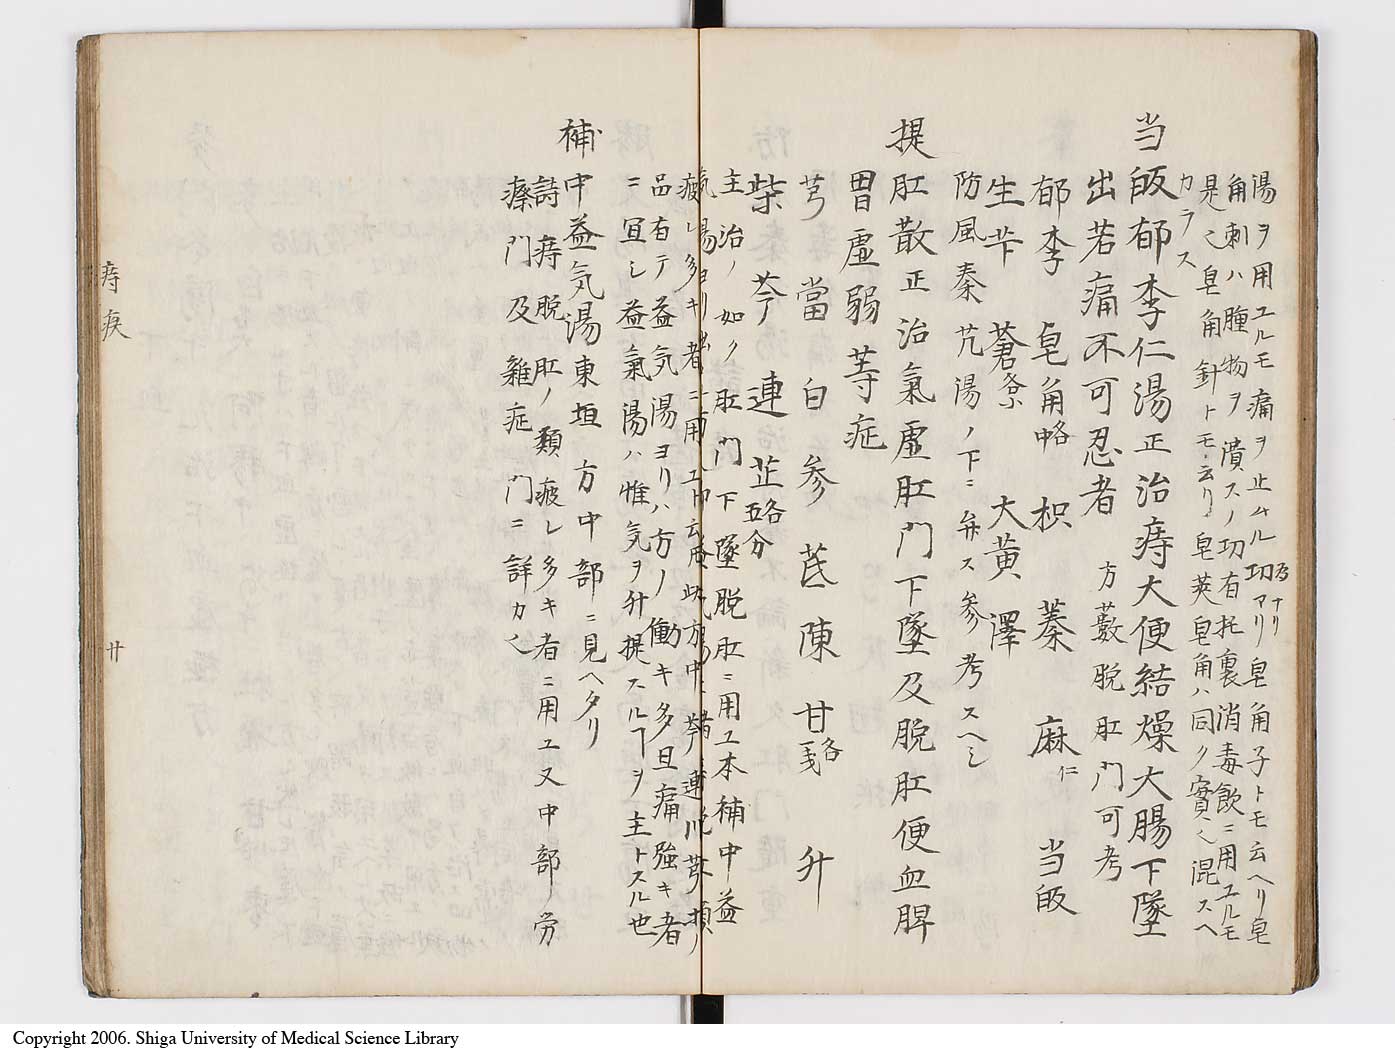 湯ヲ用ユルモ痛ヲ止ムル功アリ皂角子トモ云ヘリ皂
角刺ハ腫物ヲ潰スノ功有托裏消毒飲ニ用ユルモ
是也皂角針トモ云リ皂莢皂角ハ同ク實也混スヘ
カラス
当皈郁李仁湯正治痔大便結燥大腸下墜
出若痛不可忍者 方藪脱肛門可考
郁李 皂角 枳 蓁 麻仁 当皈
生芐 蒼各 大黄 澤
防風秦艽湯ノ下ニ弁ス参考スヘシ
提肛散正治氣虚肛門下墜及脱肛便血脾
胃虚弱等症
芎 當 白 参 芪 陳 甘各一戔 升
柴 芩 連 芷各五分
主治ノ如ク肛門下墜脱肛ニ用ユ本補中益
氣湯ヨリ出
疲レ多キ者ニ用ユ
品有テ益気湯ヨリハ方ノ働キ多旦痛強キ者
ニ宜シ益氣湯ハ惟気ヲ升提スルヿヲ主トスル也
補中益気湯東垣方中部ニ見ヘタリ
詩痔脱肛ノ類疲レ多キ者ニ用ユ又中部ノ労
瘵門及雜症門ニ詳カ也
痔疾
廿
Copyright 2006. Shiga University of Medical Science Library